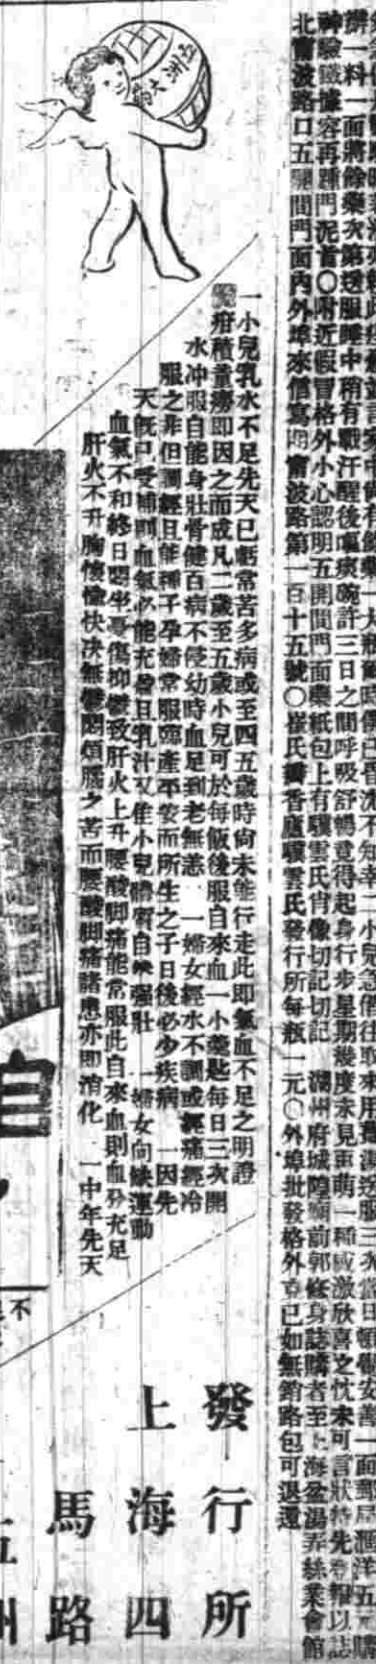 辦一料一面將餘藥次第送服睡中稍有戰汗醒後嘔痰碗許三日之間呼吸舒暢竟得起身行步星期幾度未見再萌一種感激欣喜之忱未可言狀特先登報以誌
神驗隨據容再踵門泥首〇附近假冒格外小心認明五開間門面藥紙包上有驥雲氏肖像切記切記 湖州府城隍廟前郭修身誌購者至上海盆湯弄絲業會館
北甯波路口五開間門面內外埠來信寫明甯波路第一百十五號〇崔氏瓣香廬驥雲氏發行所每瓶一元〇外埠批發格外克已如無銷路包可退還
五洲大藥
一小兒乳水不足先天已虧常苦多病或至四五歲時尙未能行走此卽氣血不足之明證
疳積童癆卽因之而成凡二歲至五歲小兒可於每飯後服自來血一小藥匙每日三次開
水冲服自能身壯骨健百病不侵幼時血足到老無恙 一婦女經水不調或經痛經冷
服之非但調經且能種子孕婦常服臨產平安而所生之子日後必少疾病 一因先
天旣已受補則血氣必能充眷且乳汁又佳小兒體質自然强壯 一婦女向缺運動
血氣不和終日悶坐憂傷抑鬱致肝火上升腰酸脚痛能常服此自來血則血分充足
肝火不升胸懷愉快決無鬱悶煩惱之苦而腰酸脚痛諸患亦卽消化 一中年先天
發行所
上海四
馬路
五洲
自
不